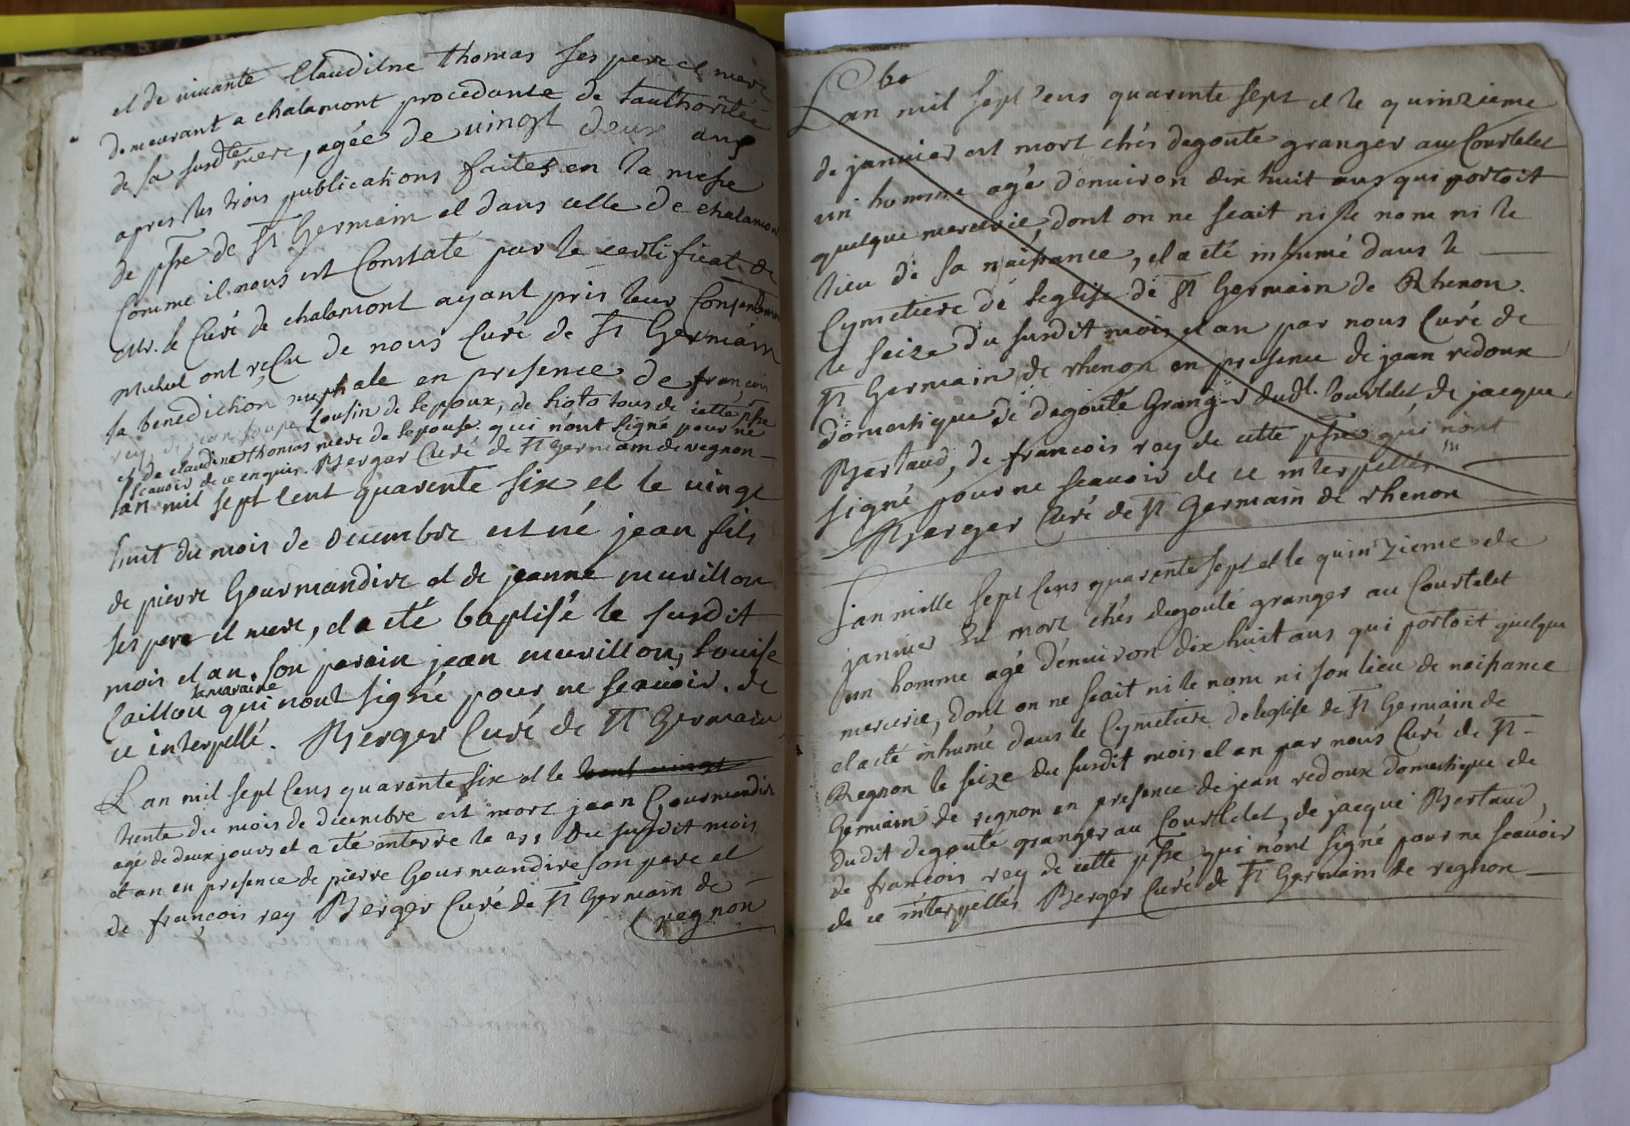 et de vivante Claudine thomas ses pere et mere
demeurant a chalamont procedante de lauthorité
de sa susdte mere, agée de vingt deux ans
apres les trois publications faites en la messe
de pſſe de St Germain et dans celle de chalamont
Comme il nous est Constaté par le certificat de
Mr. le Curé de chalamont ayant pris leur Consentement
mutuel ont reçu de nous Curé de St Germain
la benediction nuptiale en presence de françois
rey, de jean Cousin de lepoux, de tous de cette pſſe
et de claudine thomas mere de lepouse qui nont signé pour ne
scavoir de ce enquis. Berger Curé de St germain de regnon
lan mil sept cent quarente six et le vingt
huit du mois de decembre est né jean fils
de pierre Gourmandire et de jeanne muvillon
ses pere et mere, et a eté baptisé le susdit
mois et an. son parain jean muvillon, Louise
la maraine
Caillou qui nont signé pour ne scavoir. de
ce interpellé. Berger Curé de St Germain
Lan mil sept cens quarante six et le
trente du mois de decembre est mort jean Gourmandire
agé de deux jours et a eté enterré le 31 du susdit mois
et an en presence de pierre Gourmandire son pere et
de françois rey Berger Curé de St Germain de
regnon
Lan mil sept cens quarente sept et le quinzieme
de janvier est mort chés degouté granger au Courtelet
un homme agé denviron dix huit ans qui portoit
quelque mercerie, dont on ne scait ni le nom ni le
lieu de sa naissance, et a eté inhumé dans le
Cymetiere de leglise de St Germain de Rhenon
le seize du susdit mois et an par nous Curé de
St Germain de rhenon en presence de jean redoux
domestique de degouté Granger dudt. Courtelet de jacque
Bertaud, de francois rey de cette pſſe qui nont
signé pour ne scavoir de ce interpellés
Berger Curé de St Germain de rhenon
Lan mille sept cens quarente sept et le quinzieme de
janvier est mort chés degouté granger au Courtelet
un homme agé denviron dix huit ans qui portoit quelque
mercerie, dont on ne scait ni le nom ni son lieu de naissance
et a eté inhumé dans le Cymetiere de leglise de St Germain de
Regnon le seize du susdit mois et an par nous Curé de St
Germain de regnon en presence de jean redoux domestique de
dudit degouté granger au Courtelet, de jacque Bertaud,
de francois rey de cette pſſe qui nont signé pour ne scavoir
de ce interpellés Berger Curé de St Germain de regnon